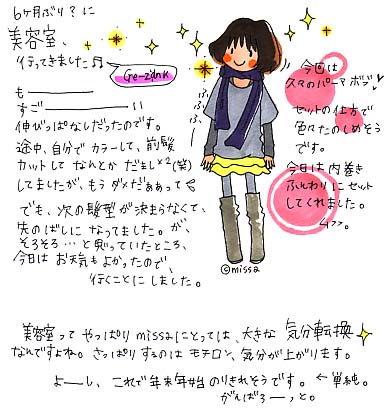 6ヶ月ぶり?に
美容室、
行ってきました♫
Ge-zann
も―――
すご―――い
伸びっぱなしだったのです。
途中、自分でカラーして、前髪
カットして なんとか だまし×2(笑)
してましたが、もう ダメだぁぁって
でも、次の髪型が決まらなくて、
先のばしに なってました。が、
そろそろ…と思っていたところ、
今日は お天気もよかったので、
行くことに しました。
ふ
ふ
ふ
今回は
久々のパーマボブ♪
セットの仕方で
色々たのしめそう
です。
今日は内巻き
ふんわりにセット
してくれました。
©missa
美容室って やっぱり missaにとっては、大きな 気分転換
なんですよね。さっぱりするのは モチロン、気分が上がります。
よーし、これで年末年始のりきれそうです。←単純。
がんばろーっと。